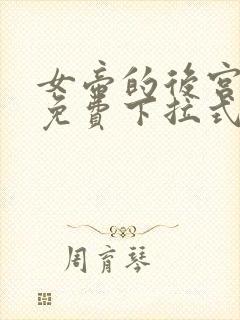 女帝的後宮
免費下拉式
周育琴